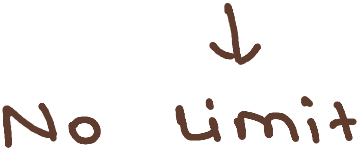 No limit